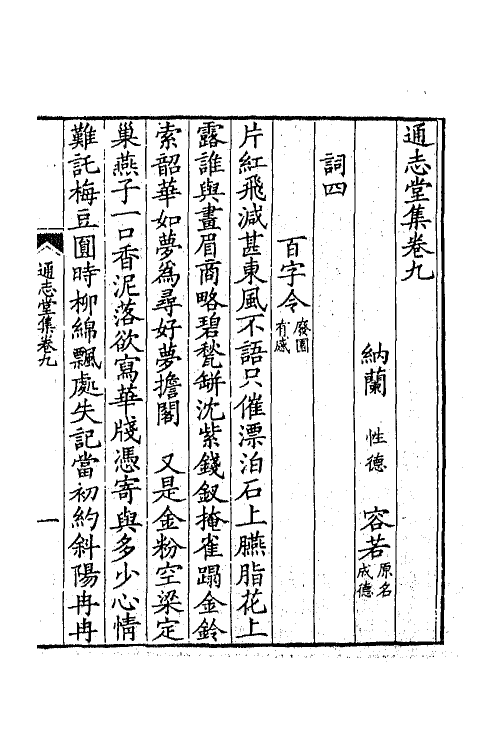 通志堂集卷九
納蘭 性德 容若 原名成德
詞四
百字令 廢園有感
片紅飛減甚東風不語只催漂泊石上臙脂花上
露誰與畫眉商略碧甃缾沈紫錢釵掩雀蹋金鈴
索韶華如夢為尋好夢擔閣 又是金粉空梁定
巢燕子一口香泥落欲寫華牋憑寄與多少心情
難託梅豆圓時柳綿飄處失記當初約斜陽冉冉
通志堂集卷九
一